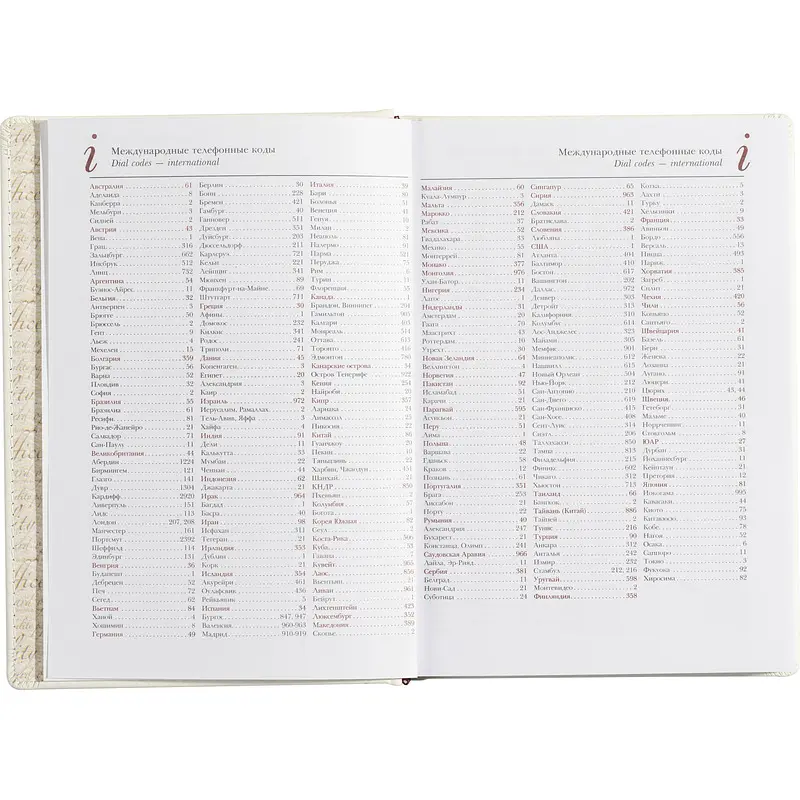 Международные телефонные коды
Dial codes — international
Австралия 61
Аделаида 8
Канберра 2
Мельбурн 3
Сидней 2
Австрия 43
Вена 1
Грац 316
Зальцбург 662
Инсбрук 512
Линц 732
Аргентина 54
Буэнос-Айрес 11
Бельгия 32
Антверпен 3
Брюгге 50
Брюссель 2
Гент 9
Льеж 4
Мехелен 15
Болгария 359
Бургас 56
Варна 52
Пловдив 32
София 2
Бразилия 55
Бразилиа 61
Ресифи 81
Рио-де-Жанейро 21
Салвадор 71
Сан-Паулу 11
Великобритания 44
Абердин 1224
Бирмингем 121
Глазго 141
Дувр 1304
Кардифф 2920
Ливерпуль 151
Лидс 113
Лондон 207, 208
Манчестер 161
Портсмут 2392
Шеффилд 114
Эдинбург 131
Венгрия 36
Будапешт 1
Дебрецен 52
Печ 72
Сегед 62
Вьетнам 84
Ханой 4
Хошимин 8
Германия 49
Берлин 30
Бонн 228
Бремен 421
Гамбург 40
Ганновер 511
Дрезден 351
Дуйсбург 203
Дюссельдорф 211
Карлсруэ 721
Кельн 221
Лейпциг 341
Мюнхен 89
Франкфурт-на-Майне 69
Штутгарт 711
Греция 30
Афины 1
Домокос 232
Килкис 341
Родос 241
Триполи 71
Дания 45
Копенгаген 3
Египет 20
Александрия 3
Каир 2
Израиль 972
Иерусалим, Рамаллах 2
Тель-Авив, Яффа 3
Хайфа 4
Индия 91
Дели 11
Калькутта 33
Мумбаи 22
Ченнаи 44
Индонезия 62
Джакарта 21
Ирак 964
Багдад 1
Басра 40
Иран 98
Исфахан 311
Тегеран 21
Ирландия 353
Дублин 1
Корк 21
Исландия 354
Акурейри 461
Рейкьявик 5
Испания 34
Бургос 847, 947
Валенсия 960-963
Мадрид 910-919
Италия 39
Бари 80
Болонья 51
Венеция 41
Генуя 10
Милан 2
Неаполь 81
Палермо 91
Парма 521
Перуджа 75
Рим 6
Турин 11
Флоренция 55
Канада 1
Брандон, Виннипег 204
Гамильтон 905
Калгари 403
Монреаль 514
Оттава 613
Торонто 416
Эдмонтон 780
Канарские острова 34
Остров Тенерифе 922
Кения 254
Найроби 20
Кипр 357
Ларнака 24
Лимассол 25
Никосия 22
Китай 86
Гуанчжоу 20
Пекин 10
Тяньцзинь 22
Шанхай 21
КНДР 850
Пхеньян 2
Колумбия 57
Богота 1
Корея Южная 82
Сеул 2
Коста-Рика 506
Куба 53
Гавана 7
Кувейт 965
Лаос 856
Вьентьян 21
Ливан 961
Бейрут 1
Лихтенштейн 423
Люксембург 352
Македония 389
Скопье 2
Международные телефонные коды
Dial codes — international
Малайзия 60
Куала-Лумпур 3
Мальта 356
Марокко 212
Рабат 37
Мексика 52
Гвадалахара 33
Мехико 55
Монтеррей 81
Монако 377
Монголия 976
Улан-Батор 11
Нигерия 234
Лагос 1
Нидерланды 31
Амстердам 20
Гаага 70
Маастрихт 43
Роттердам 10
Утрехт 30
Новая Зеландия 64
Веллингтон 4
Норвегия 47
Пакистан 92
Исламабад 51
Карачи 21
Парагвай 595
Асунсьон 21
Перу 51
Лима 1
Польша 48
Варшава 22
Гданьск 58
Краков 12
Познань 61
Португалия 351
Брага 253
Лиссабон 21
Порту 22
Румыния 40
Александрия 247
Бухарест 21
Констанца, Олимп 241
Саудовская Аравия 966
Сербия 381
Белград 11
Нови-Сад 21
Суботица 24
Сингапур 65
Сирия 963
Дамаск 11
Словакия 421
Братислава 2
Словения 386
Любляна 1
США 1
Атланта 404
Балтимор 410
Бостон 617
Вашингтон 202
Даллас 972
Денвер 303
Детройт 313
Калифорния 310
Колумбус 614
Лос-Анджелес 323
Майами 305
Мемфис 901
Миннеаполис 612
Нашвилл 615
Новый Орлеан 504
Нью-Йорк 212
Сан-Антонио 210
Сан-Диего 619
Сан-Франциско 415
Сан-Хосе 408
Сент-Луис 314
Сиэтл 206
Таллахасси 850
Тампа 813
Филадельфия 215
Финикс 602
Чикаго 312
Хьюстон 713
Таиланд 66
Бангкок 2
Тайвань (Китай) 886
Тайбей 2
Тунис 216
Турция 90
Анкара 312
Анталья 242
Измир 232
Стамбул 212, 216
Уругвай 598
Монтевидео 2
Финляндия 358
Котка 5
Лахти 3
Турку 2
Хельсинки 9
Франция 33
Авиньон 49
Бордо 556
Версаль 13
Ницца 493
Париж 1
Хорватия 385
Загреб 1
Сплит 21
Чехия 420
Чили 56
Сантьяго 2
Швейцария 41
Базель 61
Берн 31
Женева 22
Лозанна 21
Лугано 91
Люцерн 41
Цюрих 43, 44
Швеция 46
Гетеборг 31
Мальме 40
Норрчепинг 11
Стокгольм 8
ЮАР 27
Дурбан 31
Йоханнесбург 11
Кейптаун 21
Претория 12
Япония 81
Иокогама 995
Кавасаки 44
Киото 75
Китакюсю 93
Кобе 78
Нагоя 52
Осака 6
Саппоро 11
Токио 3
Фукуока 92
Хиросима 82